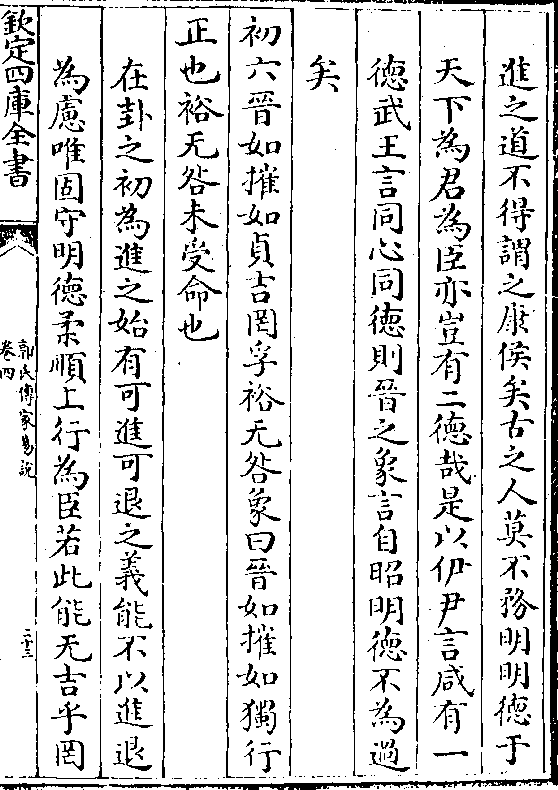 進之道不得謂之康侯矣古之人莫不務明明德于
天下為君為臣亦豈有二德哉是以伊尹言咸有一
德武王言同心同德則晉之象言自昭明德不為過
矣
初六晉如摧如貞吉罔孚裕无咎象曰晉如摧如獨行
正也裕无咎未受命也
在卦之初為進之始有可進可退之義能不以進退
為慮唯固守明德柔順上行為臣若此能无吉乎罔
欽定四庫全書
郭氏傳家易說
卷四
二十三